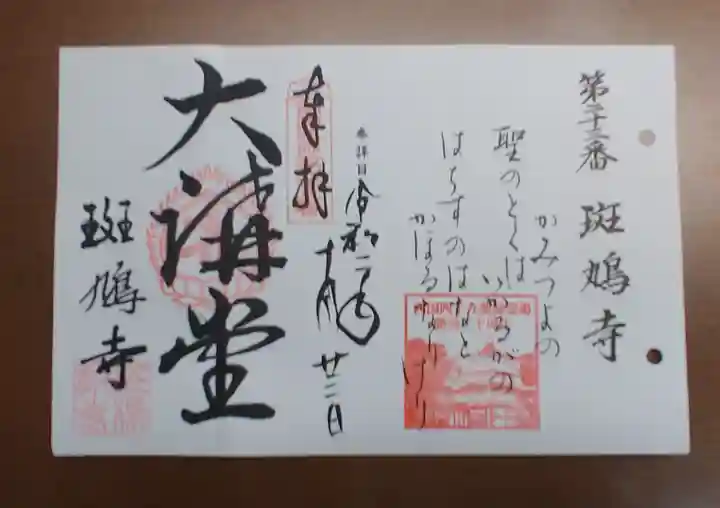 第二十三番 斑鳩寺
かみつよの
聖のとくは
いかるがの
はちすのはなと
かほるなりけり
参拝日 令和二年
廿二日
奉拝
大講堂
斑鳩寺